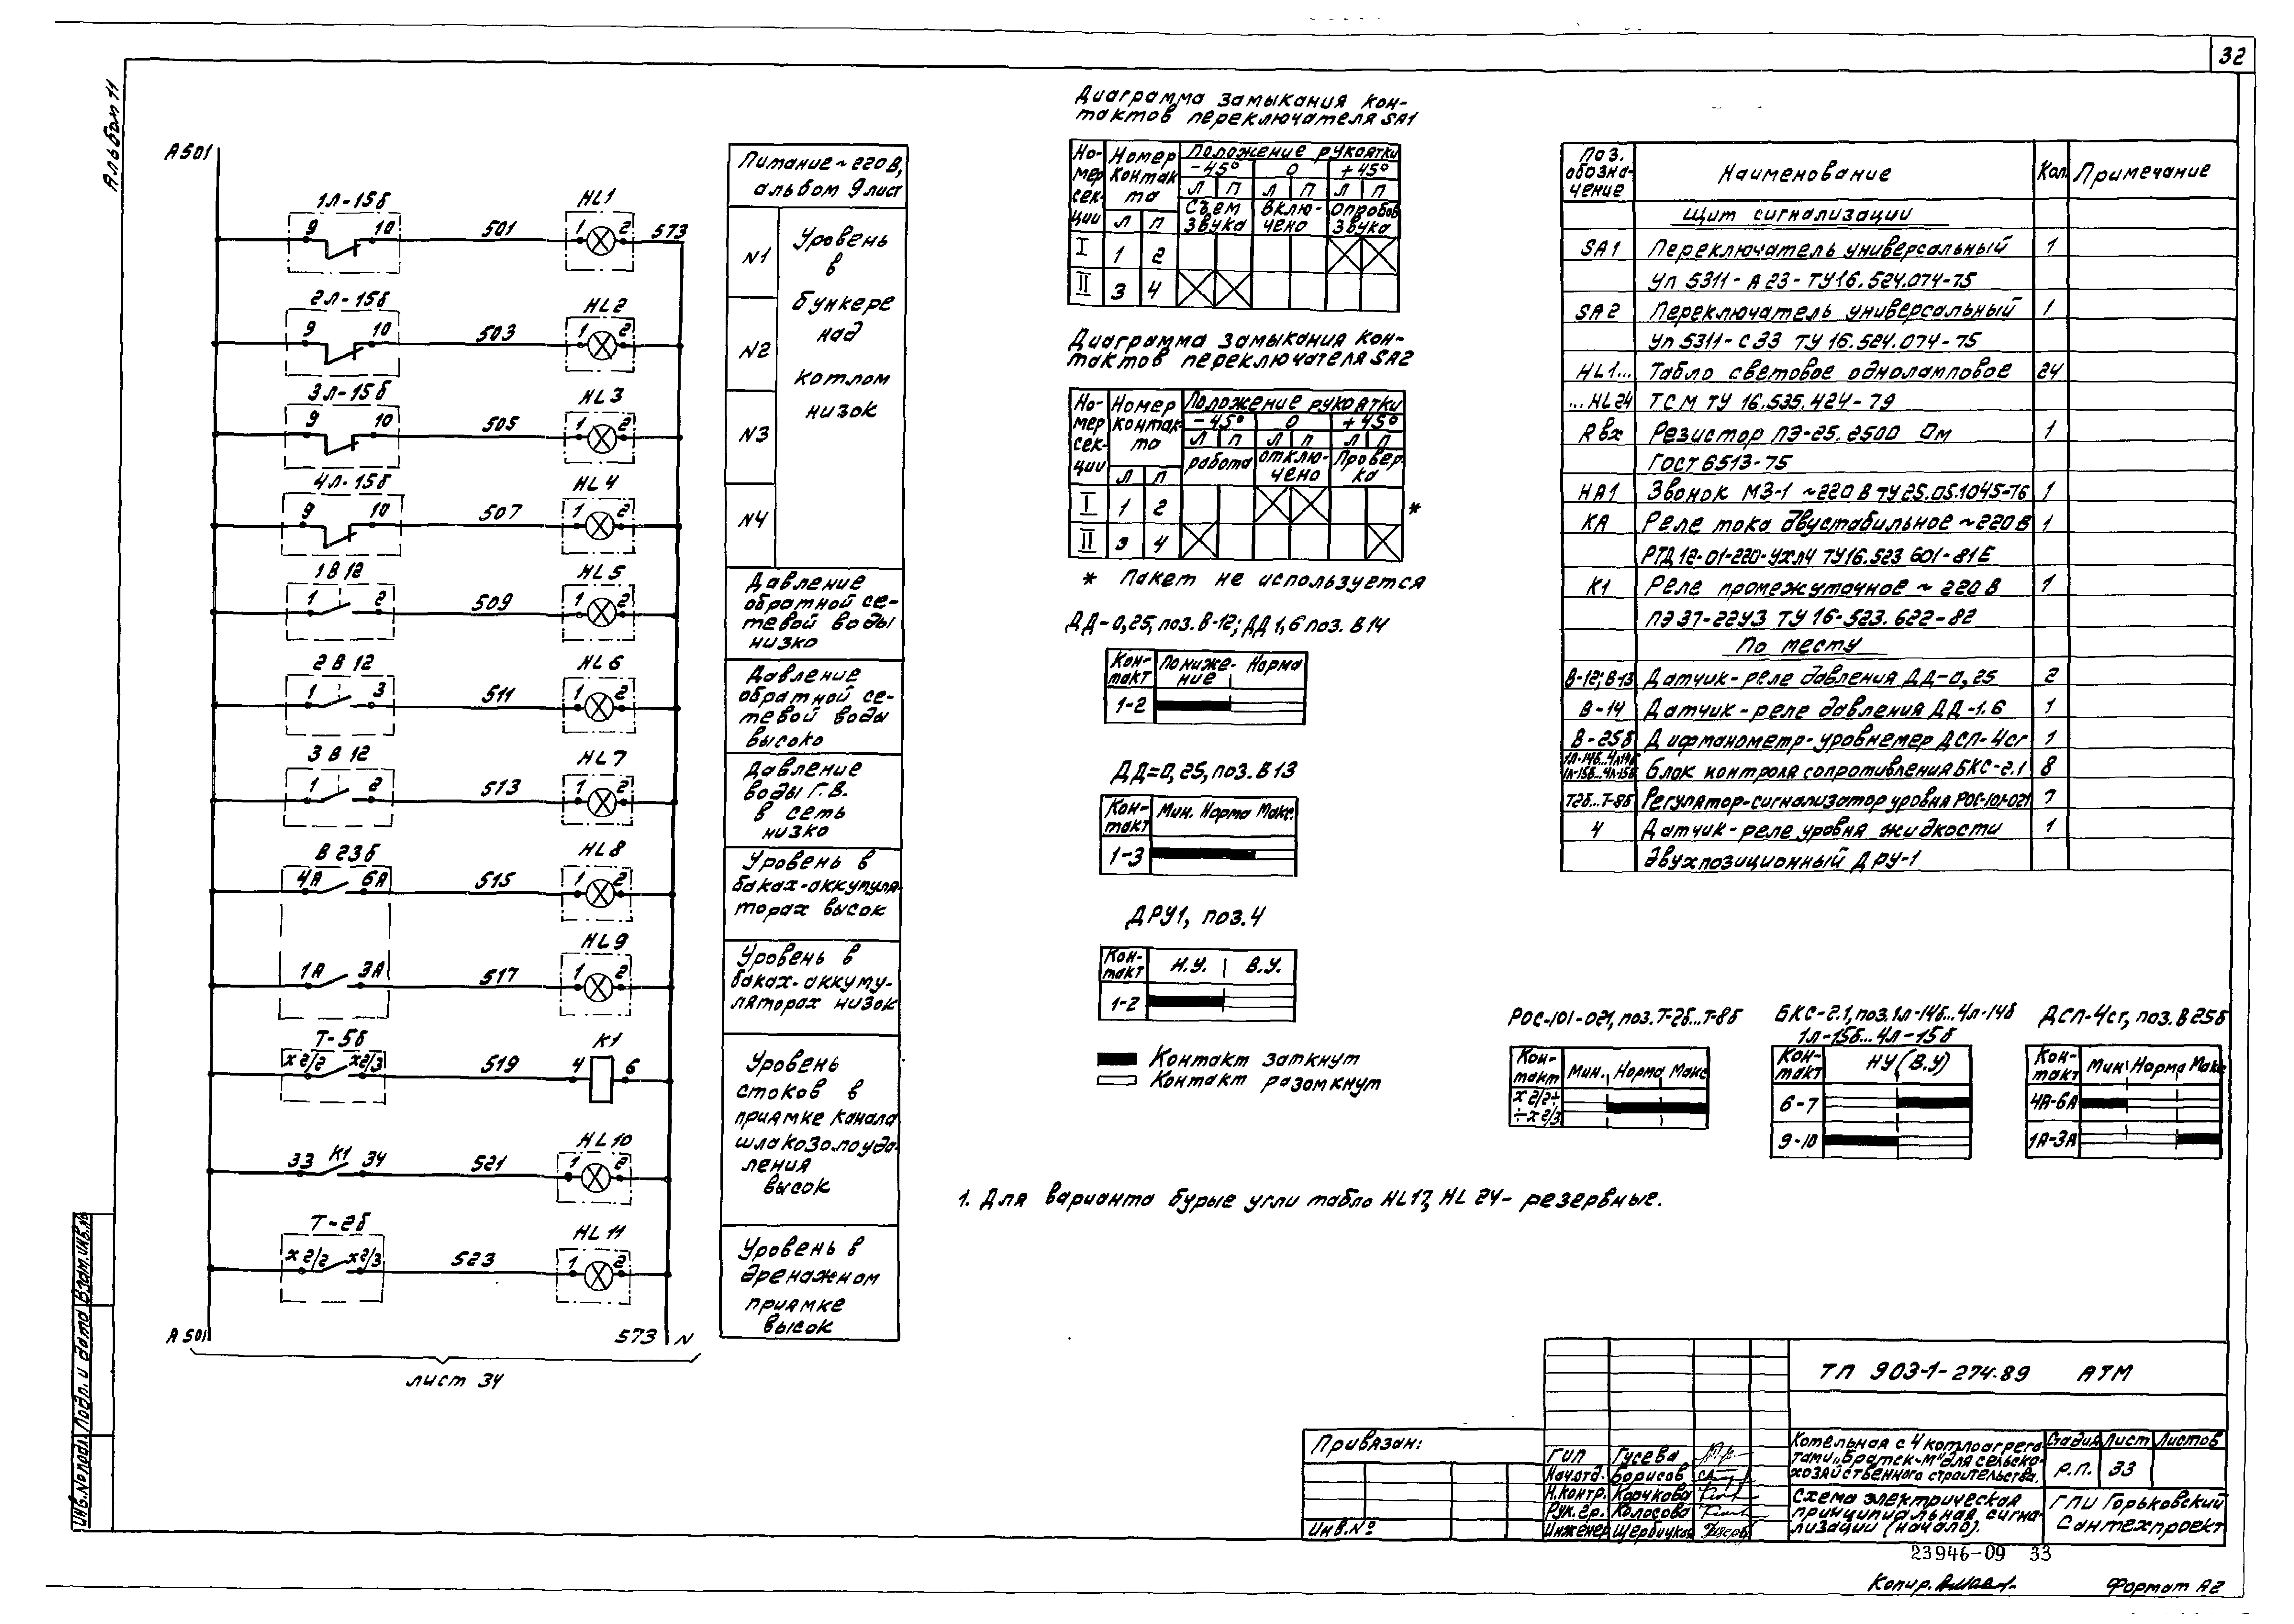 32
Альбом 11
А501
1л-15б
9 10
501
HL1
1 2
573
2л-15б
9 10
503
HL2
1 2
3л-15б
9 10
505
HL3
1 2
4л-15б
9 10
507
HL4
1 2
1В12
1 2
509
HL5
1 2
2В12
1 3
511
HL6
1 2
3В12
1 2
513
HL7
1 2
В23б
4А 6А
515
HL8
1 2
1А 3А
517
HL9
1 2
Т-5б
х2/2 х2/3
519
К1
4 6
33 К1 34
521
HL10
1 2
Т-2б
х2/2 х2/3
523
HL11
1 2
А501
573 N
лист 34
Питание ~220В,
альбом 9 лист
N1
N2
N3
N4
Уровень
в
бункере
над
котлом
низок
Давление
обратной се-
тевой воды
низко
Давление
обратной се-
тевой воды
высоко
Давление
воды Г.В.
в сеть
низко
Уровень в
баках-аккумуля
торах высок
Уровень в
баках-аккуму-
ляторах низок
Уровень
стоков в
приямке канала
шлакозолоуда-
ления
высок
Уровень в
дренажном
приямке
высок
Диаграмма замыкания кон-
тактов переключателя SA1
Но-
мер
сек-
ции
Номер
контак
та
Положение рукоятки
-45° 0 +45°
л п л п л п
л п
Съем
звука
Вклю-
чено
Опробов
звука
I 1 2
II 3 4
Диаграмма замыкания кон-
тактов переключателя SA2
Но-
мер
сек-
ции
Номер
контак-
та
Положение рукоятки
-45° 0 +45°
л п л п л п
л п
работа
отклю-
чено
Провер-
ка
I 1 2 *
II 3 4
* Пакет не используется
ДД-0,25, поз. В-12; ДД 1,6 поз. В14
Кон-
такт
Пониже-
ние
Норма
1-2
ДД=0,25, поз. В13
Кон-
такт
Мин. Норма Макс.
1-3
ДРУ1, поз. 4
Кон-
такт
Н.У. В.У.
1-2
Контакт заткнут
Контакт разомкнут
1. Для варианта бурые угли табло HL17, HL 24 - резервные.
РОС-101-021, поз. Т-2б...Т-8б
Кон-
такт
Мин. Норма Макс
х2/2÷
÷х2/3
БКС-2.1, поз. 1л-14б...4л-14б
1л-15б...4л-15б
Кон-
такт
НУ (В.У)
6-7
9-10
ДСП-4сг, поз. В25б
Кон-
такт
Мин Норма Макс
4А-6А
1А-3А
Поз.
обозна-
чение
Наименование
Кол.
Примечание
Щит сигнализации
SA1 Переключатель универсальный 1
УП 5311-А23-ТУ16.524.074-75
SA2 Переключатель универсальный 1
УП 5311-С33 ТУ 16.524.074-75
HL1... Табло световое одноламповое 24
...HL24 ТСМ ТУ 16.535.424-79
Rвх Резистор ПЭ-25.2500 Ом 1
ГОСТ 6513-75
НА1 Звонок МЗ-1 ~220 В ТУ25.05.1045-76 1
КА Реле тока двустабильное ~220В 1
РТД 12-01-220-УХЛ4 ТУ16.523 601-81Е
К1 Реле промежуточное ~ 220 В 1
ПЭ37-22У3 ТУ 16-523.622-82
По месту
В-12; В-13 Датчик-реле давления ДД-0,25 2
В-14 Датчик-реле давления ДД-1.6 1
В-25б Дифманометр-уровнемер ДСП-4сг 1
1л-14б...4л14б
1л-15б...4л-15б Блок контроля сопротивления БКС-2.1 8
Т2б...Т-8б Регулятор-сигнализатор уровня РОС-101-021 7
4 Датчик-реле уровня жидкости 1
двухпозиционный ДРУ-1
ТП 903-1-274.89 АТМ
Привязан:
Инв.№
ГИП Гусева
Нач.отд. Борисов
Н.контр. Корчкова
Рук.гр. Колосова
Инженер Щербицкая
Котельная с 4 котлоагрега-
тами „Братск-М" для сельско-
хозяйственного строительства.
Стадия Лист Листов
Р.П. 33
Схема электрическая
принципиальная сигна-
лизации (начало).
ГПИ Горьковский
Сантехпроект
23946-09 33
Копир.
Формат А2
Инв.№ подл. Подп. и дата Взам.инв.№